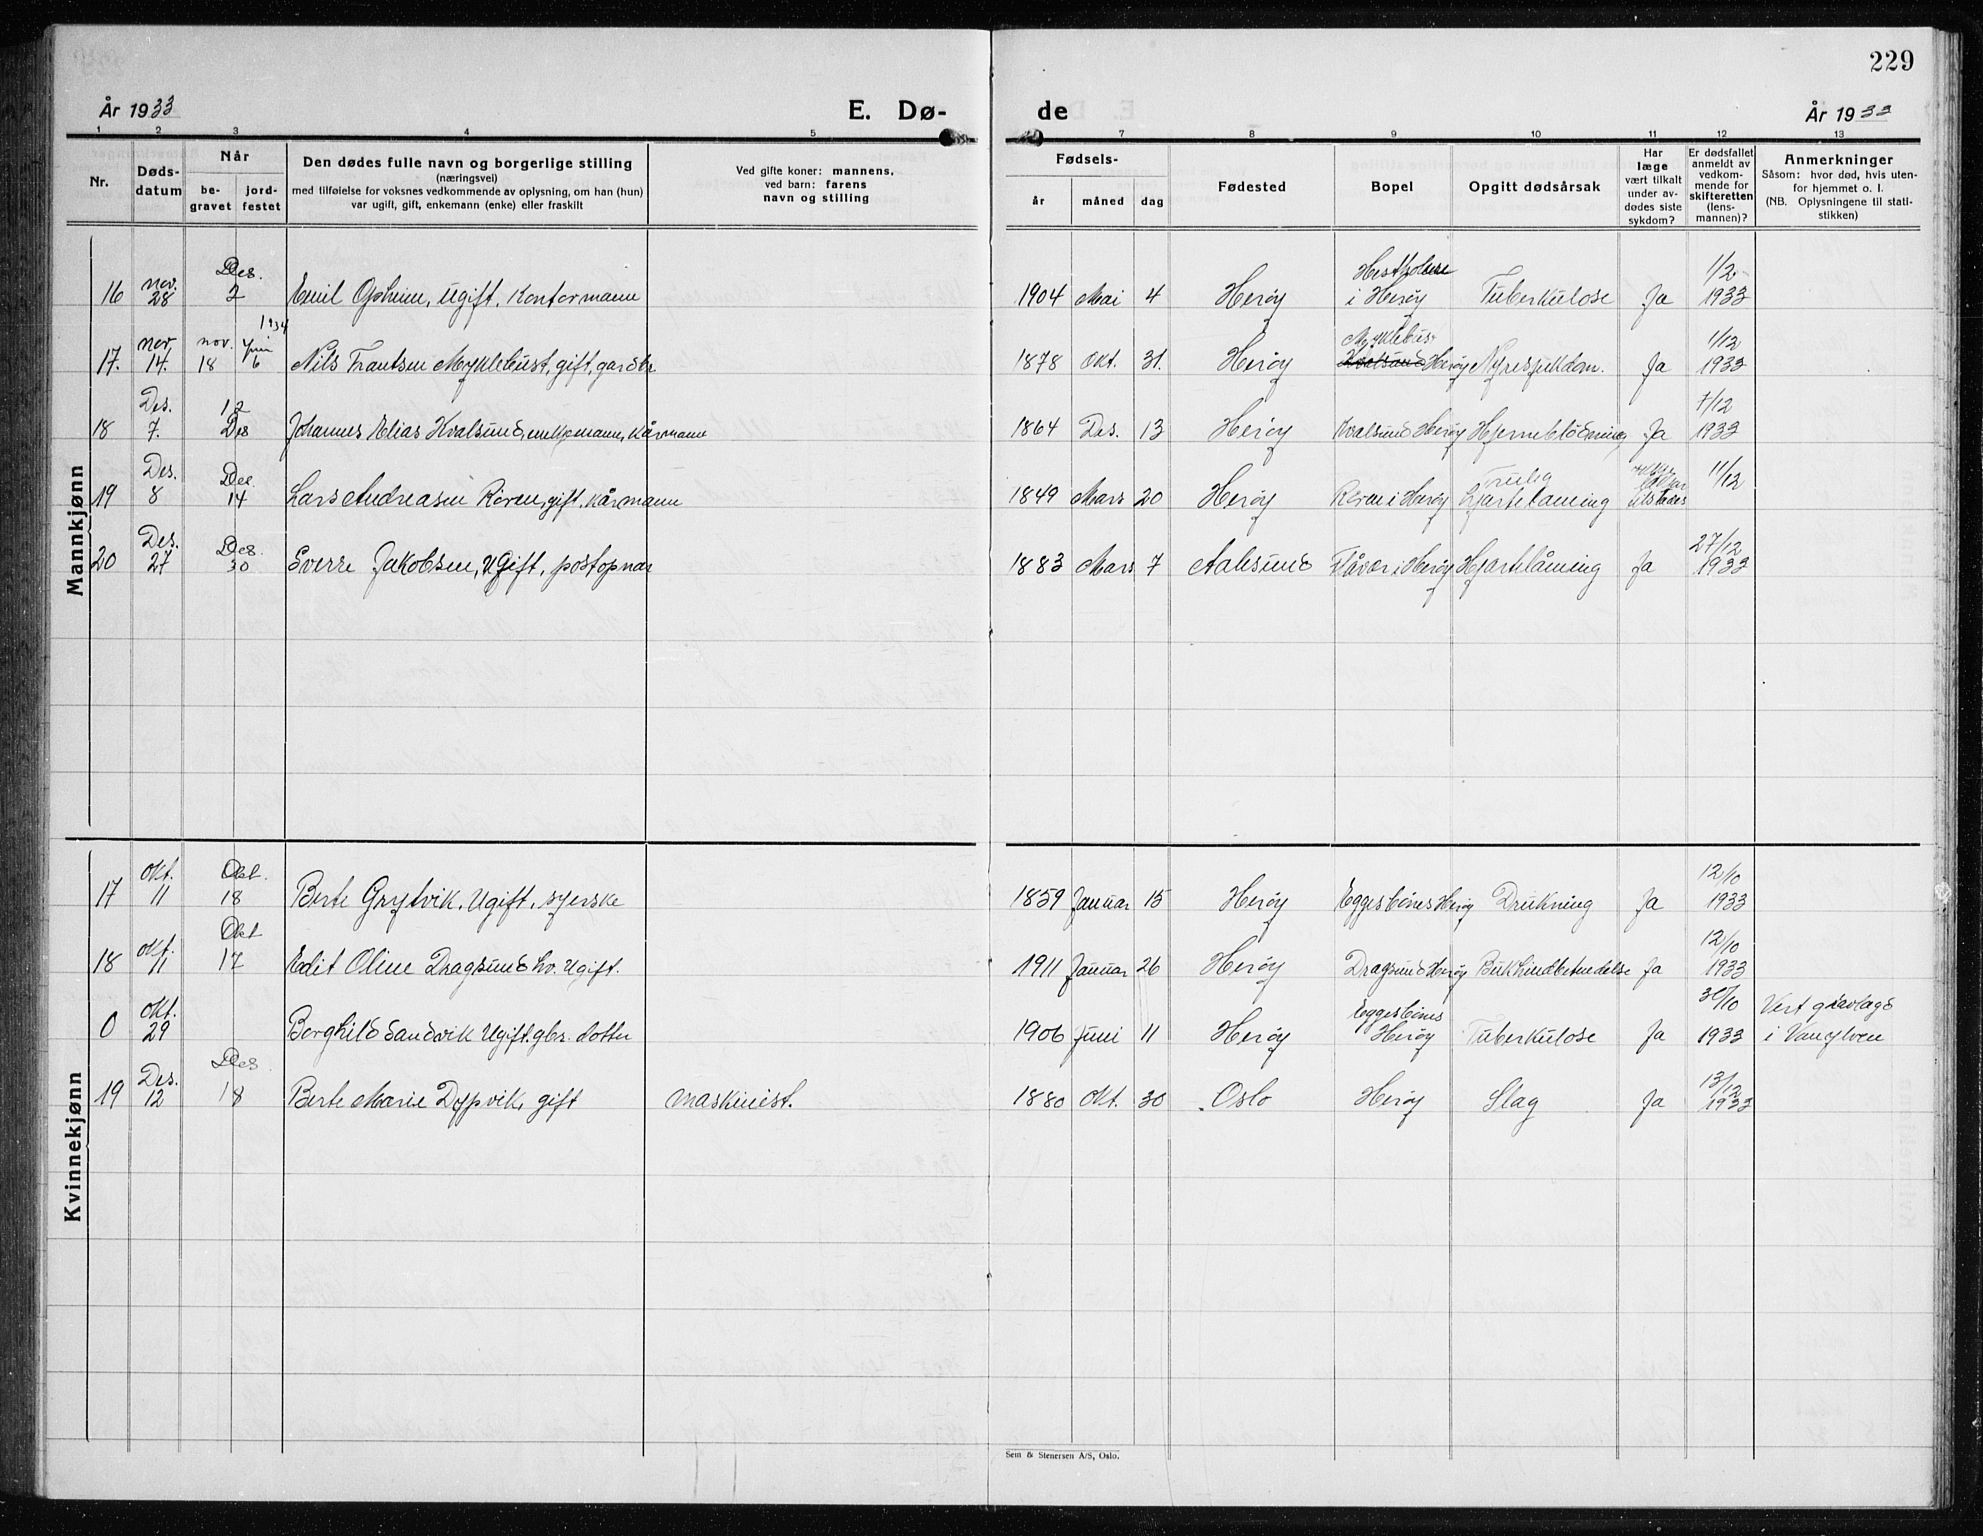 229
År 1933 E. Dø- de År 1933
1 2 3 4 5 7 8 9 10 11 12 13
Nr.
Døds-
datum
Når
be-
gravet
jord-
festet
Den dødes fulle navn og borgerlige stilling
(næringsvei)
med tilføielse for voksnes vedkommende av oplysning, om han (hun)
var ugift, gift, enkemann (enke) eller fraskilt
Ved gifte koner: mannens,
ved barn: farens
navn og stilling
Fødsels-
år måned dag
Fødested
Bopel
Opgitt dødsårsak
Har
læge
vært tilkalt
under av-
dødes siste
sykdom?
Er dødsfallet
anmeldt av
vedkom-
mende for
skifteretten
(lens-
mannen)?
Anmerkninger
Såsom: hvor død, hvis uten-
for hjemmet o. l.
(NB. Oplysningene til stati-
stikken)
Mannkjønn
nov. Des. Hestholm 1/2
16 28 2 Emil Opheim, ugift, Kontormann 1904 Mai 4 Herøy i Herøy Tuberkulose Ja 1933
1934
nov. nov. Myklebus 1/12
17. 14. 18 6 Nils Frantsen Myklebust, gift, gardbr 1878 Okt. 31. Herøy Kvalsund Herøy Nyresykdom. Ja 1933
Des. 12 7/12
18 7. Des Johannes Elias Kvalsund, enkemann, kårmann 1864 Des. 13 Herøy Kvalsund Herøy Hjerneblødning Ja 1933
Des. Des. Trulig ikke 11/12
19 8 14 Lars Andreasen Røren, gift, kårmann 1849 Mars 20 Herøy Røren i Herøy Hjartelaming tilstades
Des. Des. 27/12
20 27 30 Sverre Jakobsen, Ugift, postopnar 1883 Mars 7 Aalesund Flåvær i Herøy Hjartelåming Ja 1933
Kvinnekjønn
Okt. Okt. 12/10
17 11 18 Berte Grytvik, Ugift, syerske 1859 Januar 15 Herøy Eggesbønes Herøy Drukning Ja 1933
Okt. Okt 12/10
18 11 17 Edit Oline Dragsund hv. Ugift. 1911 Januar 26 Herøy Dragsund Herøy Bukhindbetendelse Ja 1933
Okt. Eggesbønes 30/10 Vert gravlagd
0 29 Borghild Sandvik Ugift. gbr. dotter 1906 Juni 11 Herøy Herøy Tuberkulose Ja 1933 i Vanylven
Des. Des. 13/12
19 12 18 Berte Marie Dypvik, gift maskinist. 1880 Okt. 30 Oslo Herøy Slag Ja 1933
Sem & Stenersen A/S, Oslo.